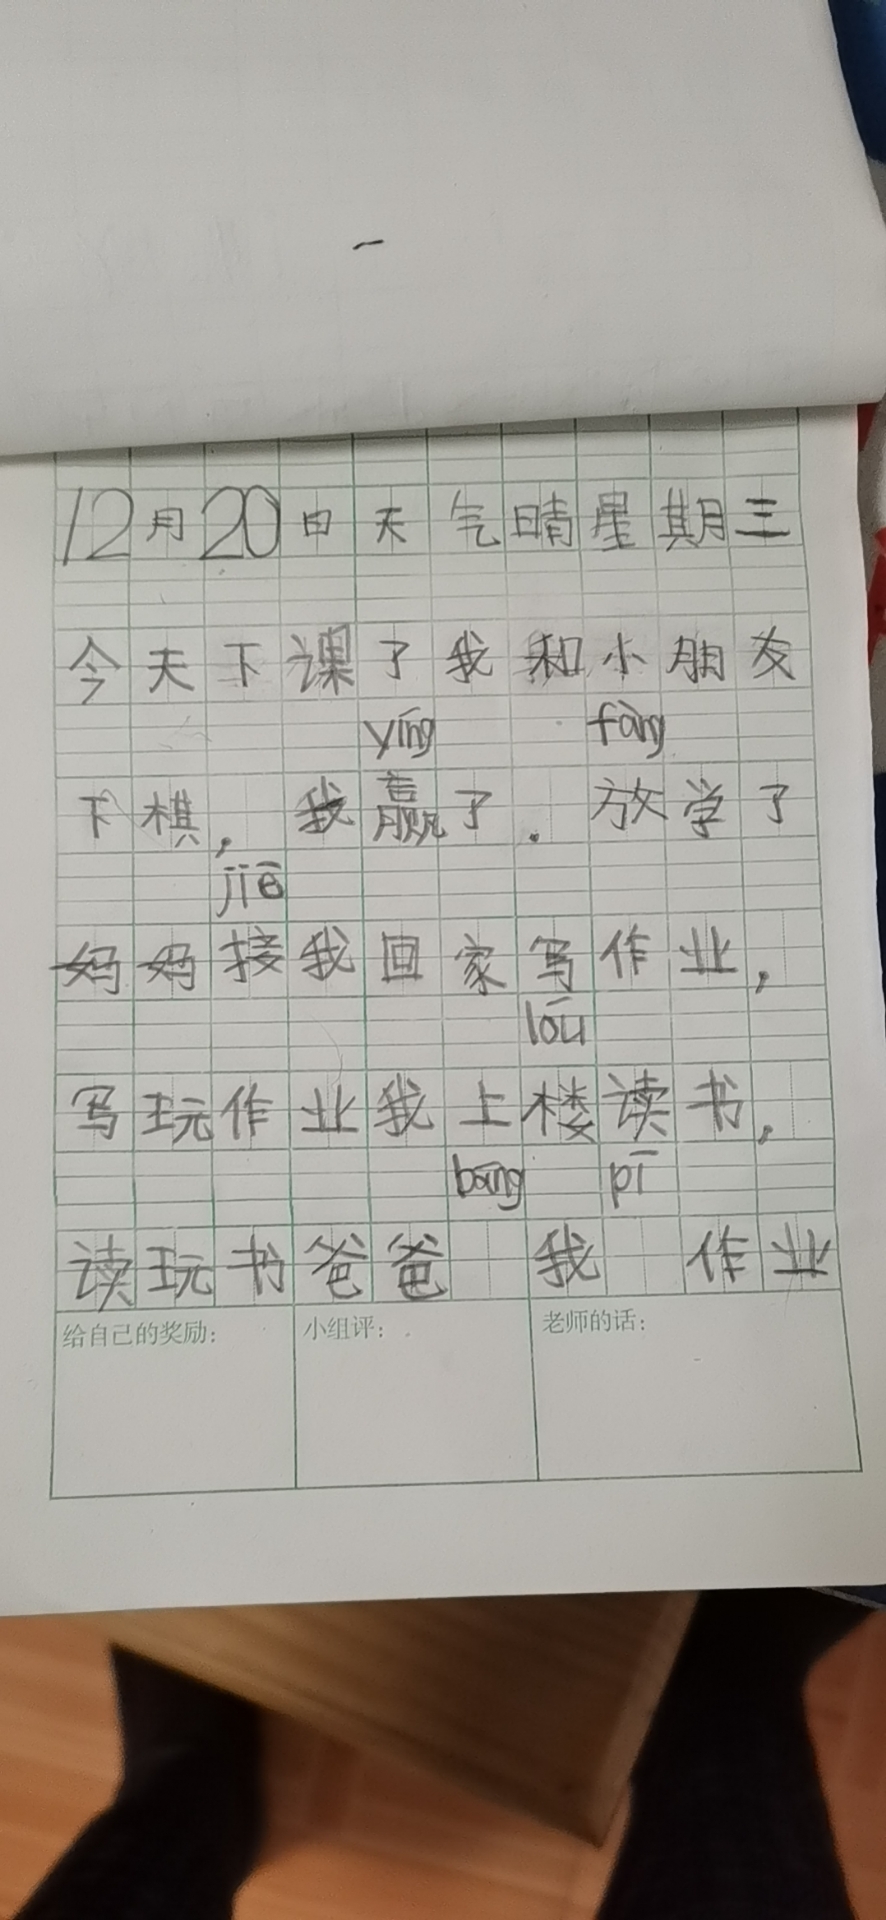 12月20日天气晴星期三
今天下课了我和小朋友
yíng fàng
下棋，我赢了．放学了
jiē
妈妈接我回家写作业，
lóu
写玩作业我上楼读书，
bāng pī
读玩书爸爸 我 作业
给自己的奖励： 小组评： 老师的话：